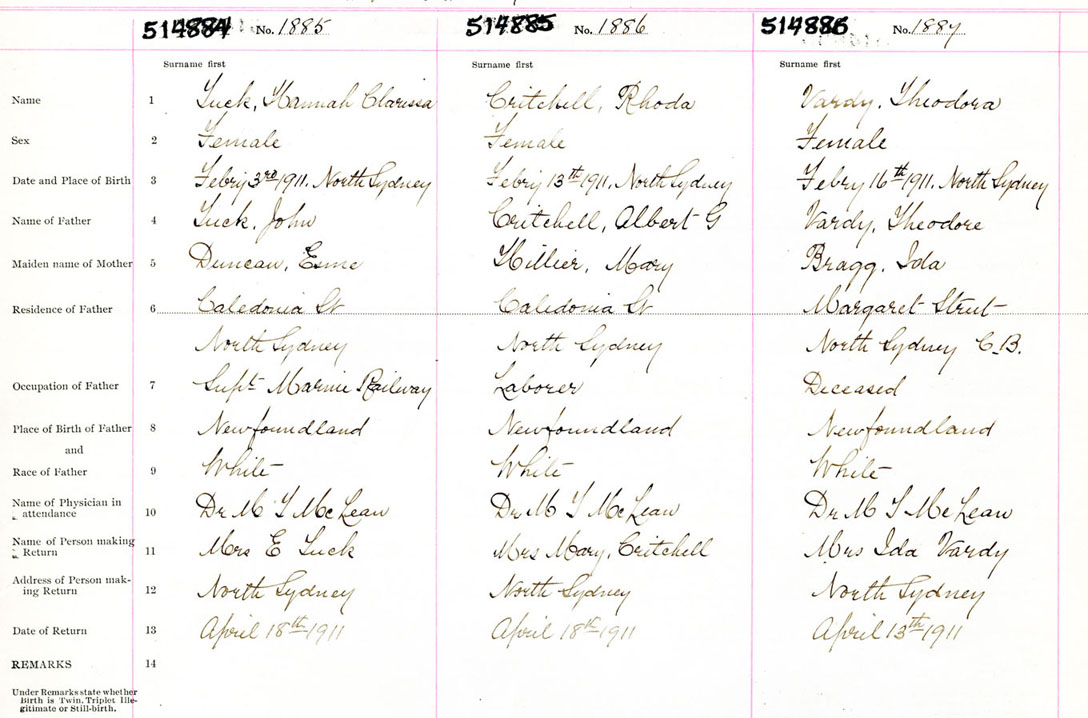 514884 No. 1885 514885 No. 1886 514886 No. 1887
Surname first Surname first Surname first
Name 1 Luck, Hannah Clarissa Critchell, Rhoda Vardy, Theodora
Sex 2 Female Female Female
Date and Place of Birth 3 Febry 3rd 1911. North Sydney Febry 13th 1911. North Sydney Febry 16th 1911. North Sydney
Name of Father 4 Luck, John Critchell, Albert G Vardy, Theodore
Maiden name of Mother 5 Duncan, Esme Hillier, Mary Bragg, Ida
Residence of Father 6 Caledonia St Caledonia St Margaret Street
North Sydney North Sydney North Sydney C.B.
Occupation of Father 7 Supt Marine Railway Laborer Deceased
Place of Birth of Father 8 Newfoundland Newfoundland Newfoundland
and
Race of Father 9 White White White
Name of Physician in
attendance 10 Dr M T McLean Dr M T McLean Dr M T McLean
Name of Person making
Return 11 Mrs E Luck Mrs Mary, Critchell Mrs Ida Vardy
Address of Person mak-
ing Return 12 North Sydney North Sydney North Sydney
Date of Return 13 April 18th 1911 April 18th 1911 April 13th 1911
REMARKS 14
Under Remarks state whether
Birth is Twin, Triplet Ille-
gitimate or Still-birth.